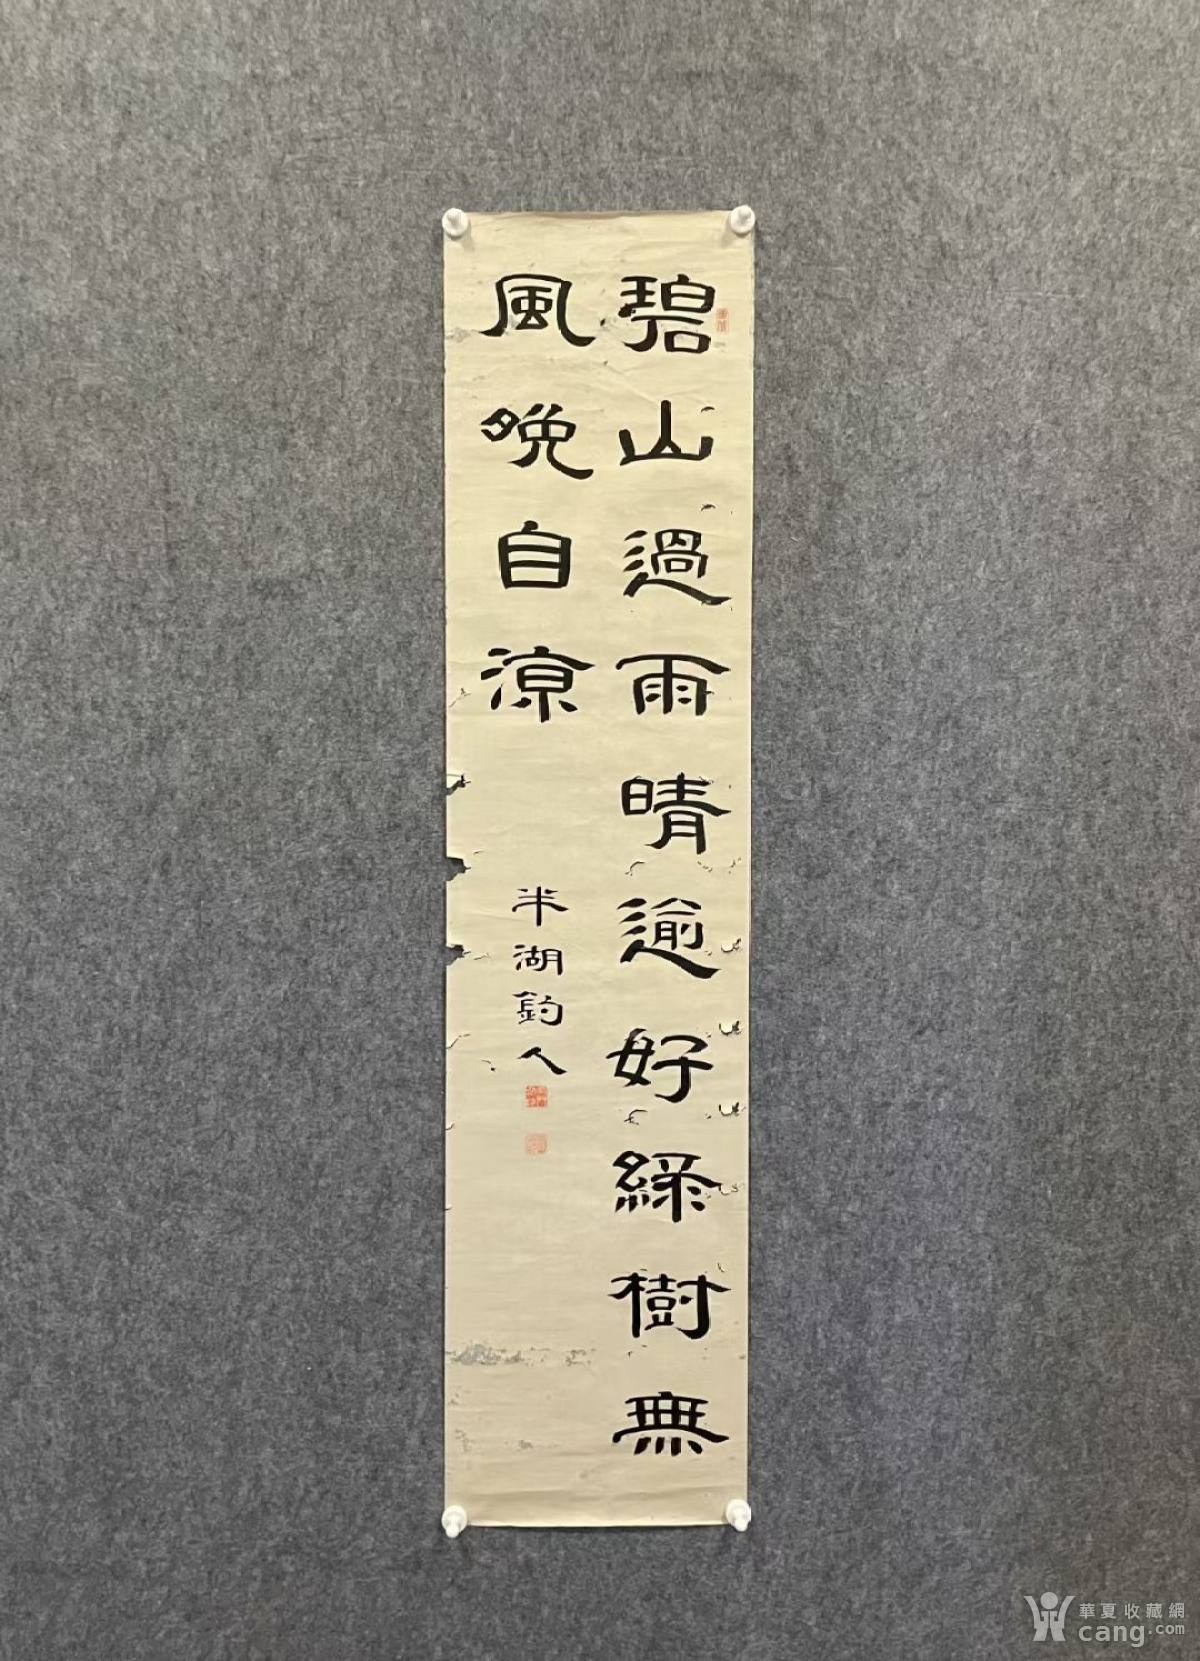 碧山過雨晴逾好綠樹無
風晚自涼
半湖釣人
華夏收藏網
cang.com